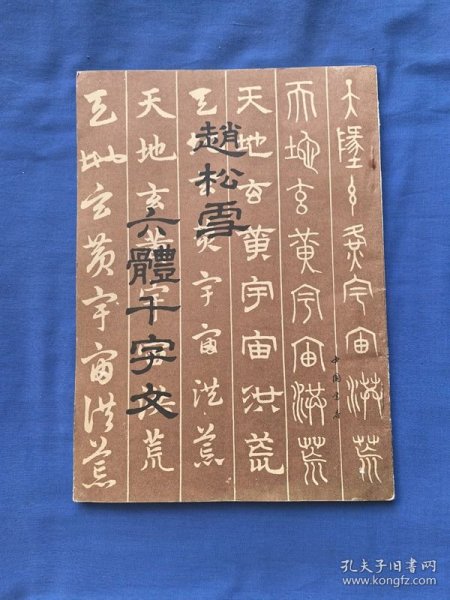 天墬玄黃宇宙洪荒
天地玄黃宇宙洪荒
天地玄黃宇宙洪荒
天地玄黃宇宙洪荒
天地玄黃宇宙洪荒
天地玄黃宇宙洪荒
趙松雪
六體千字文
中國書店
孔夫子旧书网
www.kongfz.com